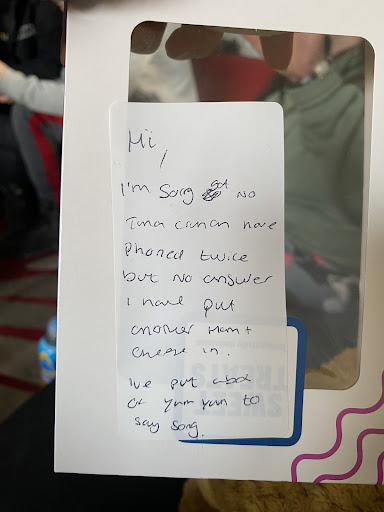 Hi,
I'm Sorry got NO
Tuna crunch have
Phoned twice
but no answer
I have put
another Ham +
cheese in.
Ive put a box
of yum yum to
say sorry.
SWEET
TREATS